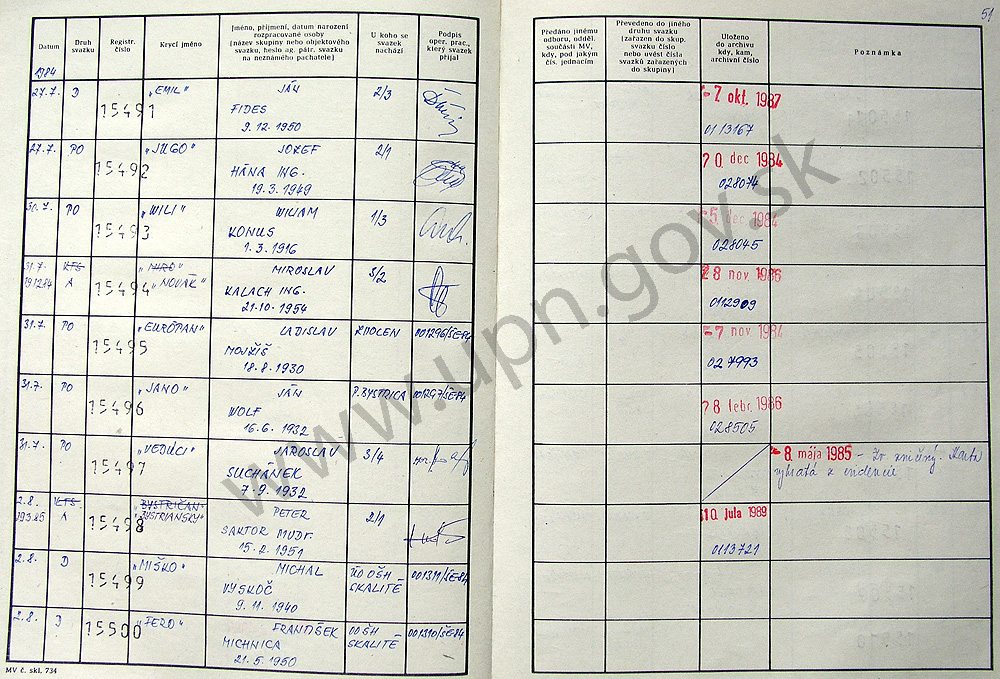 51
Datum
Druh svazku
Registr. číslo
Krycí jméno
Jméno, příjmení, datum narození
rozpracované osoby
(název skupiny nebo objektového
svazku, heslo ag. pátr. svazku
na neznámého pachatele)
U koho se
svazek
nachází
Podpis
oper. prac.,
který svazek
přijal
Předáno jinému
odboru, odděl.
součásti MV,
kdy, pod jakým
čís. jednacím
Převedeno do jiného
druhu svazku
(zařazen do skup.
svazku číslo
nebo uvést čísla
svazků zařazených
do skupiny)
Uloženo
do archivu
kdy, kam,
archivní číslo
Poznámka
1984
27.7. D 15491 „EMIL" JÁN 2/3 -7 okt. 1987
FIDES
9.12.1950 0113167
27.7. PO 15492 „JUGO" JOZEF 2/1 20 dec 1984
HÁNA ING.
19.3.1949 028074
30.7. PO 15493 „WILI" WILIAM 1/3 -5 dec 1984
KONUS
1.3.1916 028045
31.7. KTS 15494 „MIRO" MIROSLAV 3/2 28 nov 1986
19.12.84 A „NOVÁK" KALACH ING.
21.10.1954 0112909
31.7. PO 15495 „EURÓPAN" LADISLAV ZVOLEN 001296/ŠE-84 -7 nov 1984
MOJŽIŠ
18.8.1930 027993
31.7. PO 15496 „JANO" JÁN P. BYSTRICA 001297/ŠE84 28 febr. 1986
WOLF
16.6.1932 028505
31.7. PO 15497 „VEDÚCI" JAROSLAV 3/4 -8. mája 1985 - Zv. zničený. Karta
SUCHÁNEK vybratá z evidencie
7.9.1932
2.8. KTS 15498 BYSTRIČAN PETER 2/1 10 júla 1989
19.3.85 A „BYSTRIANSKY" SAKTOR MUDr.
15.2.1951 0113721
2.8. D 15499 „MIŠKO" MICHAL ÚO OŠH 001311/ŠE-84
VYSKOČ SKALITÉ
9.11.1940
2.8. D 15500 „FERO" FRANTIŠEK OO ŠH 001310/ŠE-84
MICHNICA SKALITÉ
21.5.1950
MV č. skl. 734
www.upn.gov.sk